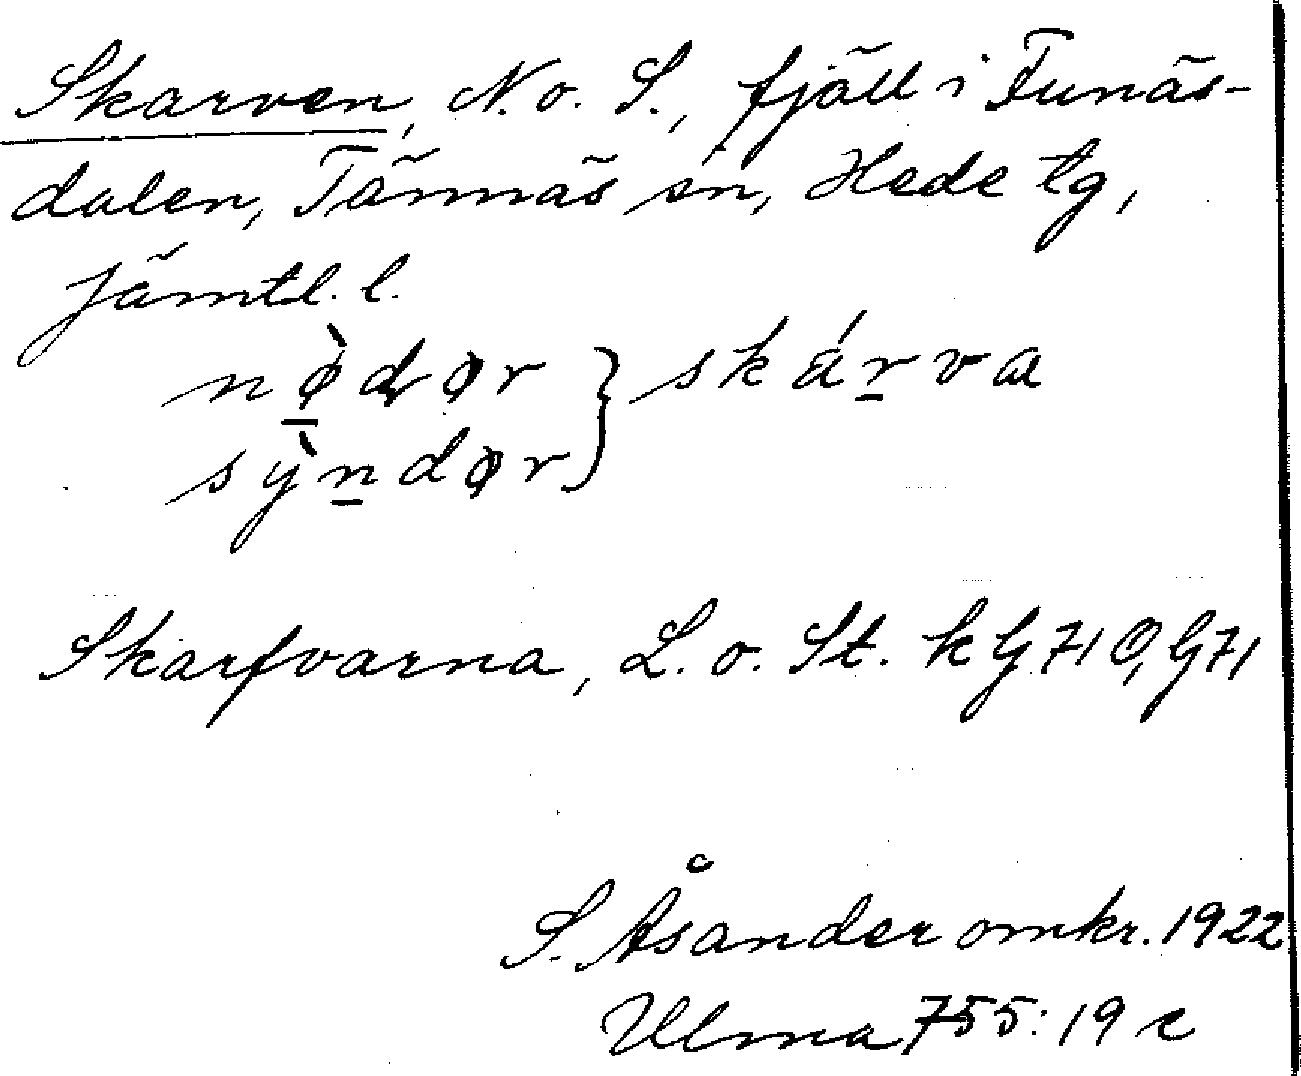 Skarven, N. o. S., fjäll i Funäs-
dalen, Tännäs sn, Hede tg,
Jämtl. l.
nø̱̀dør } skáṟva
sỳṉdør
Skarfvarna, L. o. St. k G 71 O, G 71
S. Åsander omkr. 1922
Ulma 755:19 c